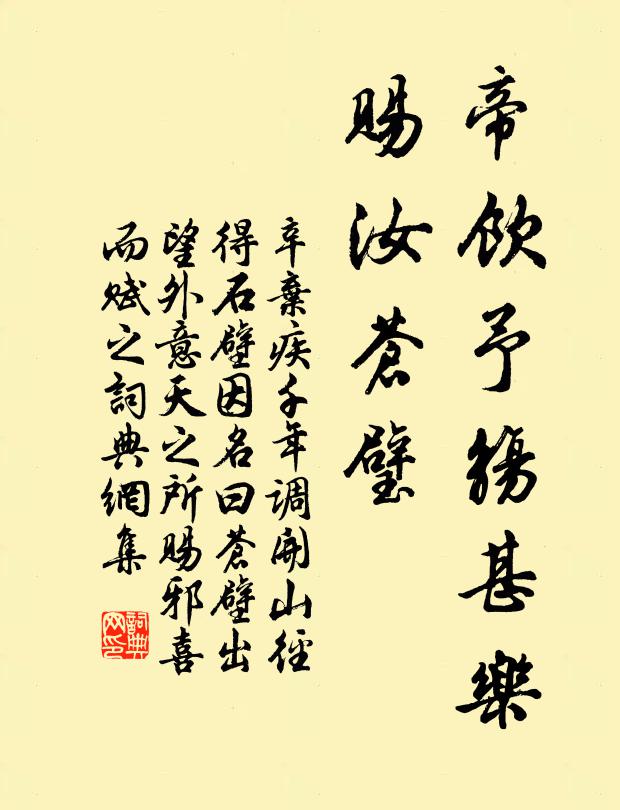 帝飲予觴甚樂
賜汝蒼璧
辛棄疾千年调開山徑
得石壁因名曰蒼壁出
望外意天之所賜邪喜
而賦之詞典網集
詞典网印